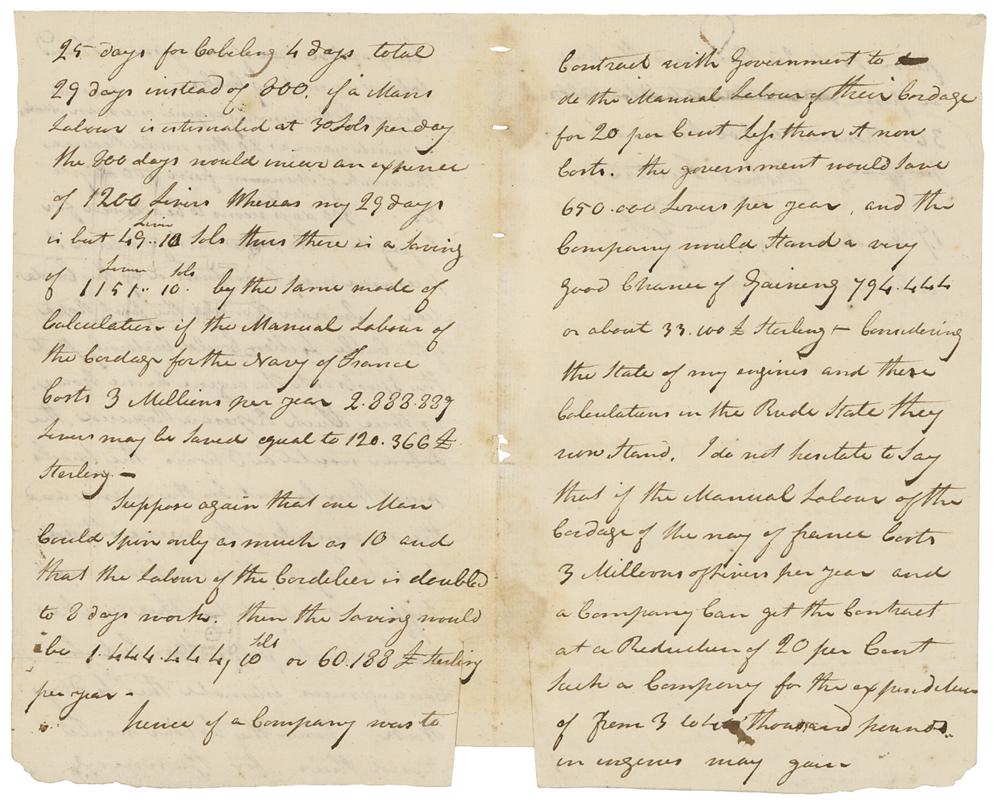 25 days for Cabeling 4 days total
29 days instead of 800. if a Mans
Labour is estimated at 30 Sols per day
the 800 days would incur an expence
of 1200 Livers Whereas my 29 days
Livers
is but 49.. 10 Sols thus there is a Saving
Livers Sols
of 1151.. 10. by the Same mode of
Calculation if the Manual Labour of
the Cordage for the Navy of France
Costs 3 Millions per year 2.888.889
Livers may be Saved equal to 120.366 £
Sterling —
Suppose again that one Man
Could Spin only as much as 10 and
that the Labour of the Cordelier is doubled
to 8 days work. then the Saving would
Sols
be 1.444.444, 10 or 60.188 £ Sterling
per year -
hence if a Company was to
Contract with Government to
do the Manual Labour of their Cordage
for 20 per Cent less than it now
Costs. the government would Save
650.000 Livers per year, and the
Company would Stand a very
good Chance of Gaineng 794.444
or about 33.100 £ Sterling - Considering
the State of my engines and these
Calculations in the Rude State they
now Stand. I do not hesitate to Say
that if the Manual Labour of the
Cordage of the navy of france Costs
3 Millions of Livers per year and
a Company Can get the Contract
at a Reduction of 20 per Cent
Such a Company for the expenditure
of from 3 to thousand pounds
in engines may gain